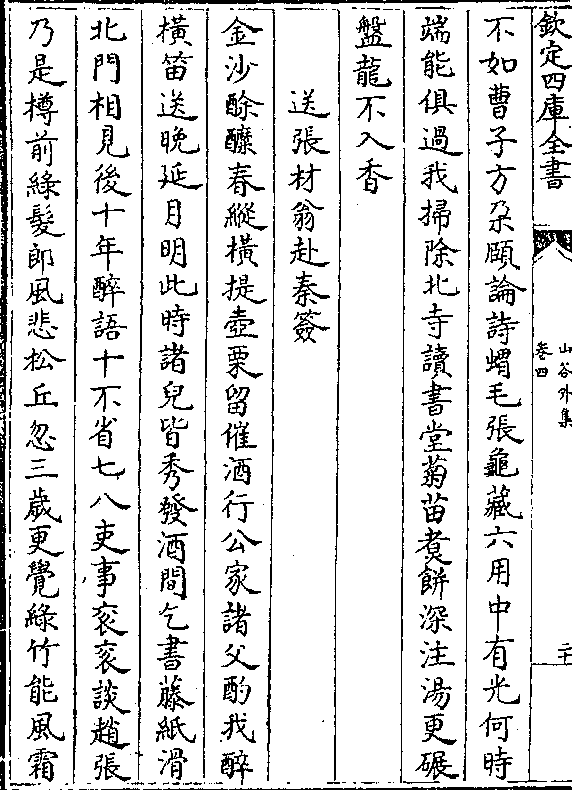 欽定四庫全書
山谷外集
卷四
二十
不如曹子方朶頤論詩蝟毛張龜藏六用中有光何時
端能俱過我掃除北寺讀書堂菊苗煑餅深注湯更碾
盤龍不入香
送張材翁赴秦簽
金沙酴醿春縱橫提壺栗留催酒行公家諸父酌我醉
橫笛送晚延月明此時諸兒皆秀發酒間乞書藤紙滑
北門相見後十年醉語十不省七八吏事衮衮談趙張
乃是樽前綠髮郎風悲松丘忽三歲更覺綠竹能風霜